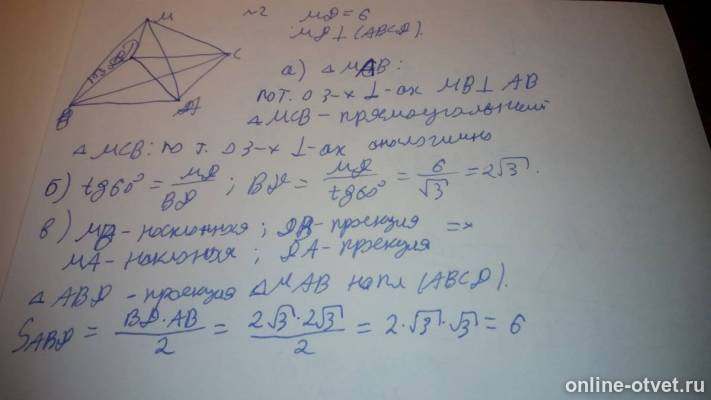 M
C
B
A
№2 MD = 6
MD ⊥ (ABCD).
а) △ MAB:
по т. о 3-х ⊥-ах MB ⊥ AB
△ MCB - прямоугольный
△ MCB: по т. о 3-х ⊥-ах аналогично
б) tg 60° = MD/BD ; BD = MD/tg 60° = 6/√3 = 2√3.
в) MB - наклонная ; DB - проекция =>
MA - наклонная ; DA - проекция
△ ABD - проекция △ MAB на пл (ABCD).
S_ABD = BD·AB/2 = 2√3·2√3/2 = 2·√3·√3 = 6
online-otvet.ru